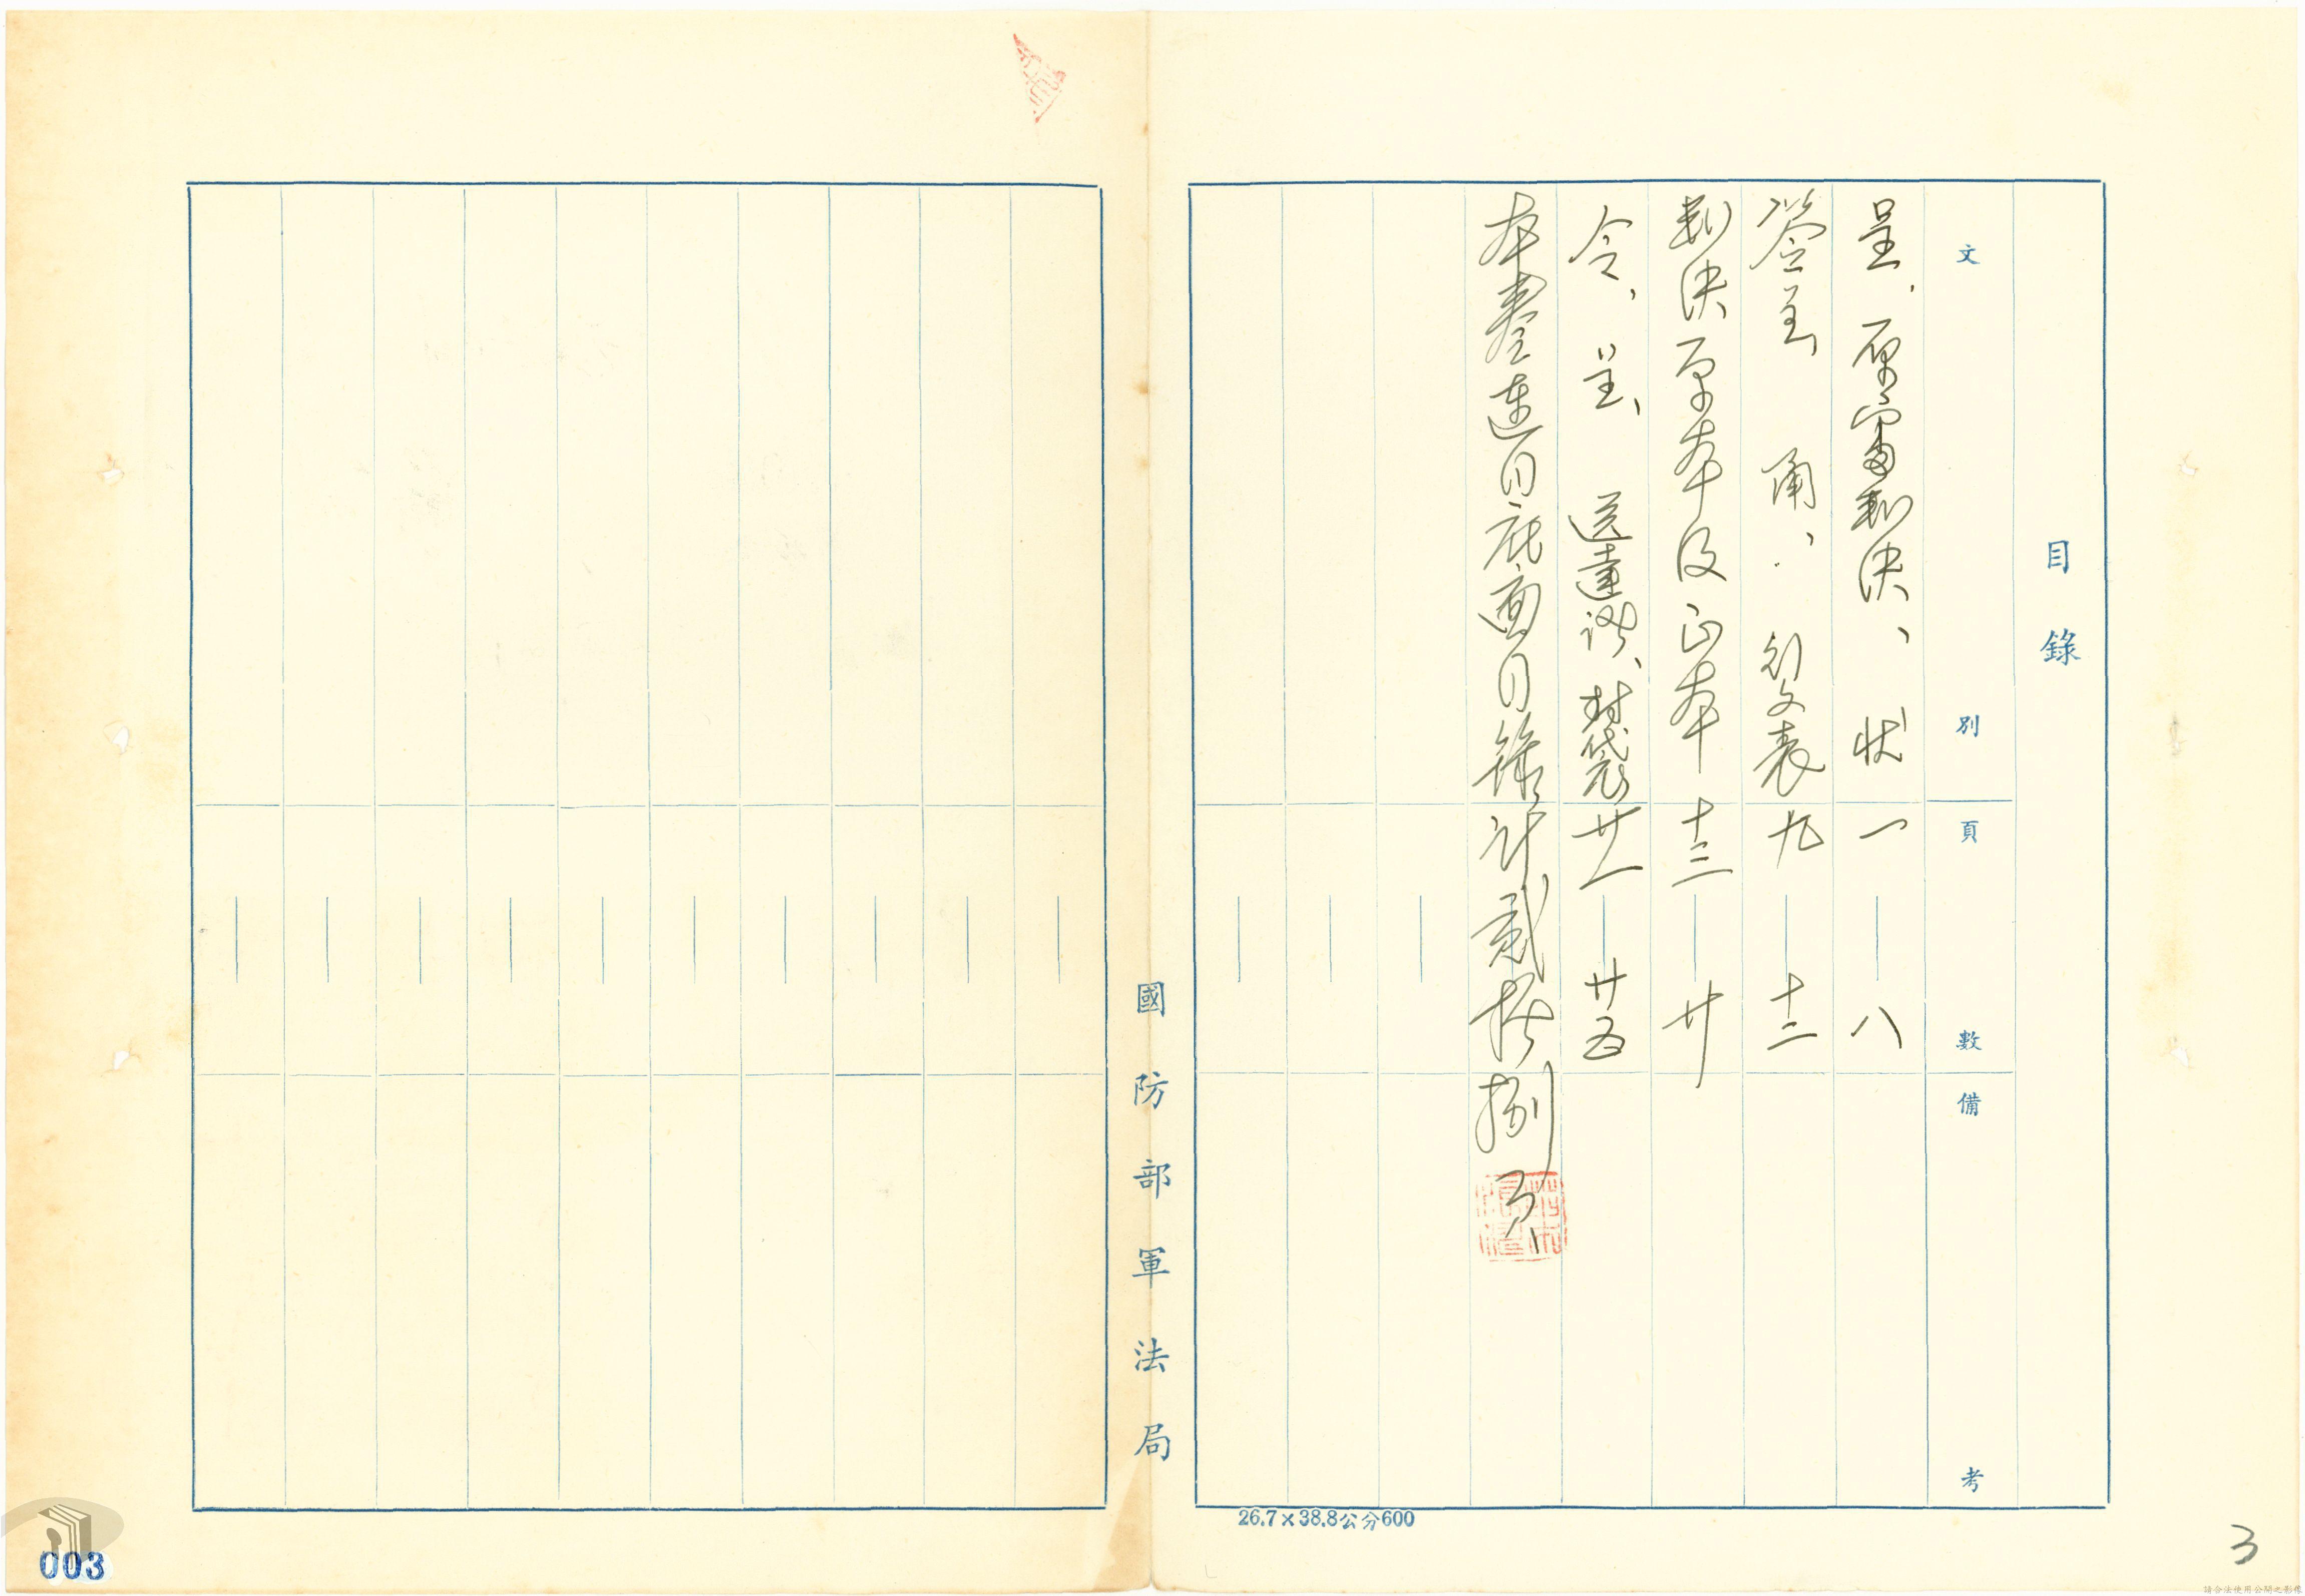 目錄
文別 頁數 備考
呈、原審判決、狀 一 八
簽呈 函、行文表 九 十二
判決原本及正本 十三 廿
令、呈、送達證、封袋 廿一 廿五
本卷連同底面目錄計貳拾捌頁
國防部軍法局
26.7×38.8公分600
3
003
請合法使用公開之影像